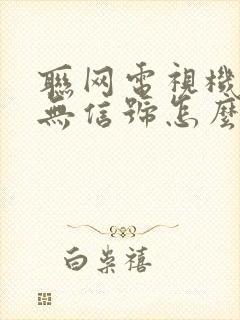 聯网電視機
無信號怎麼
白崇禧